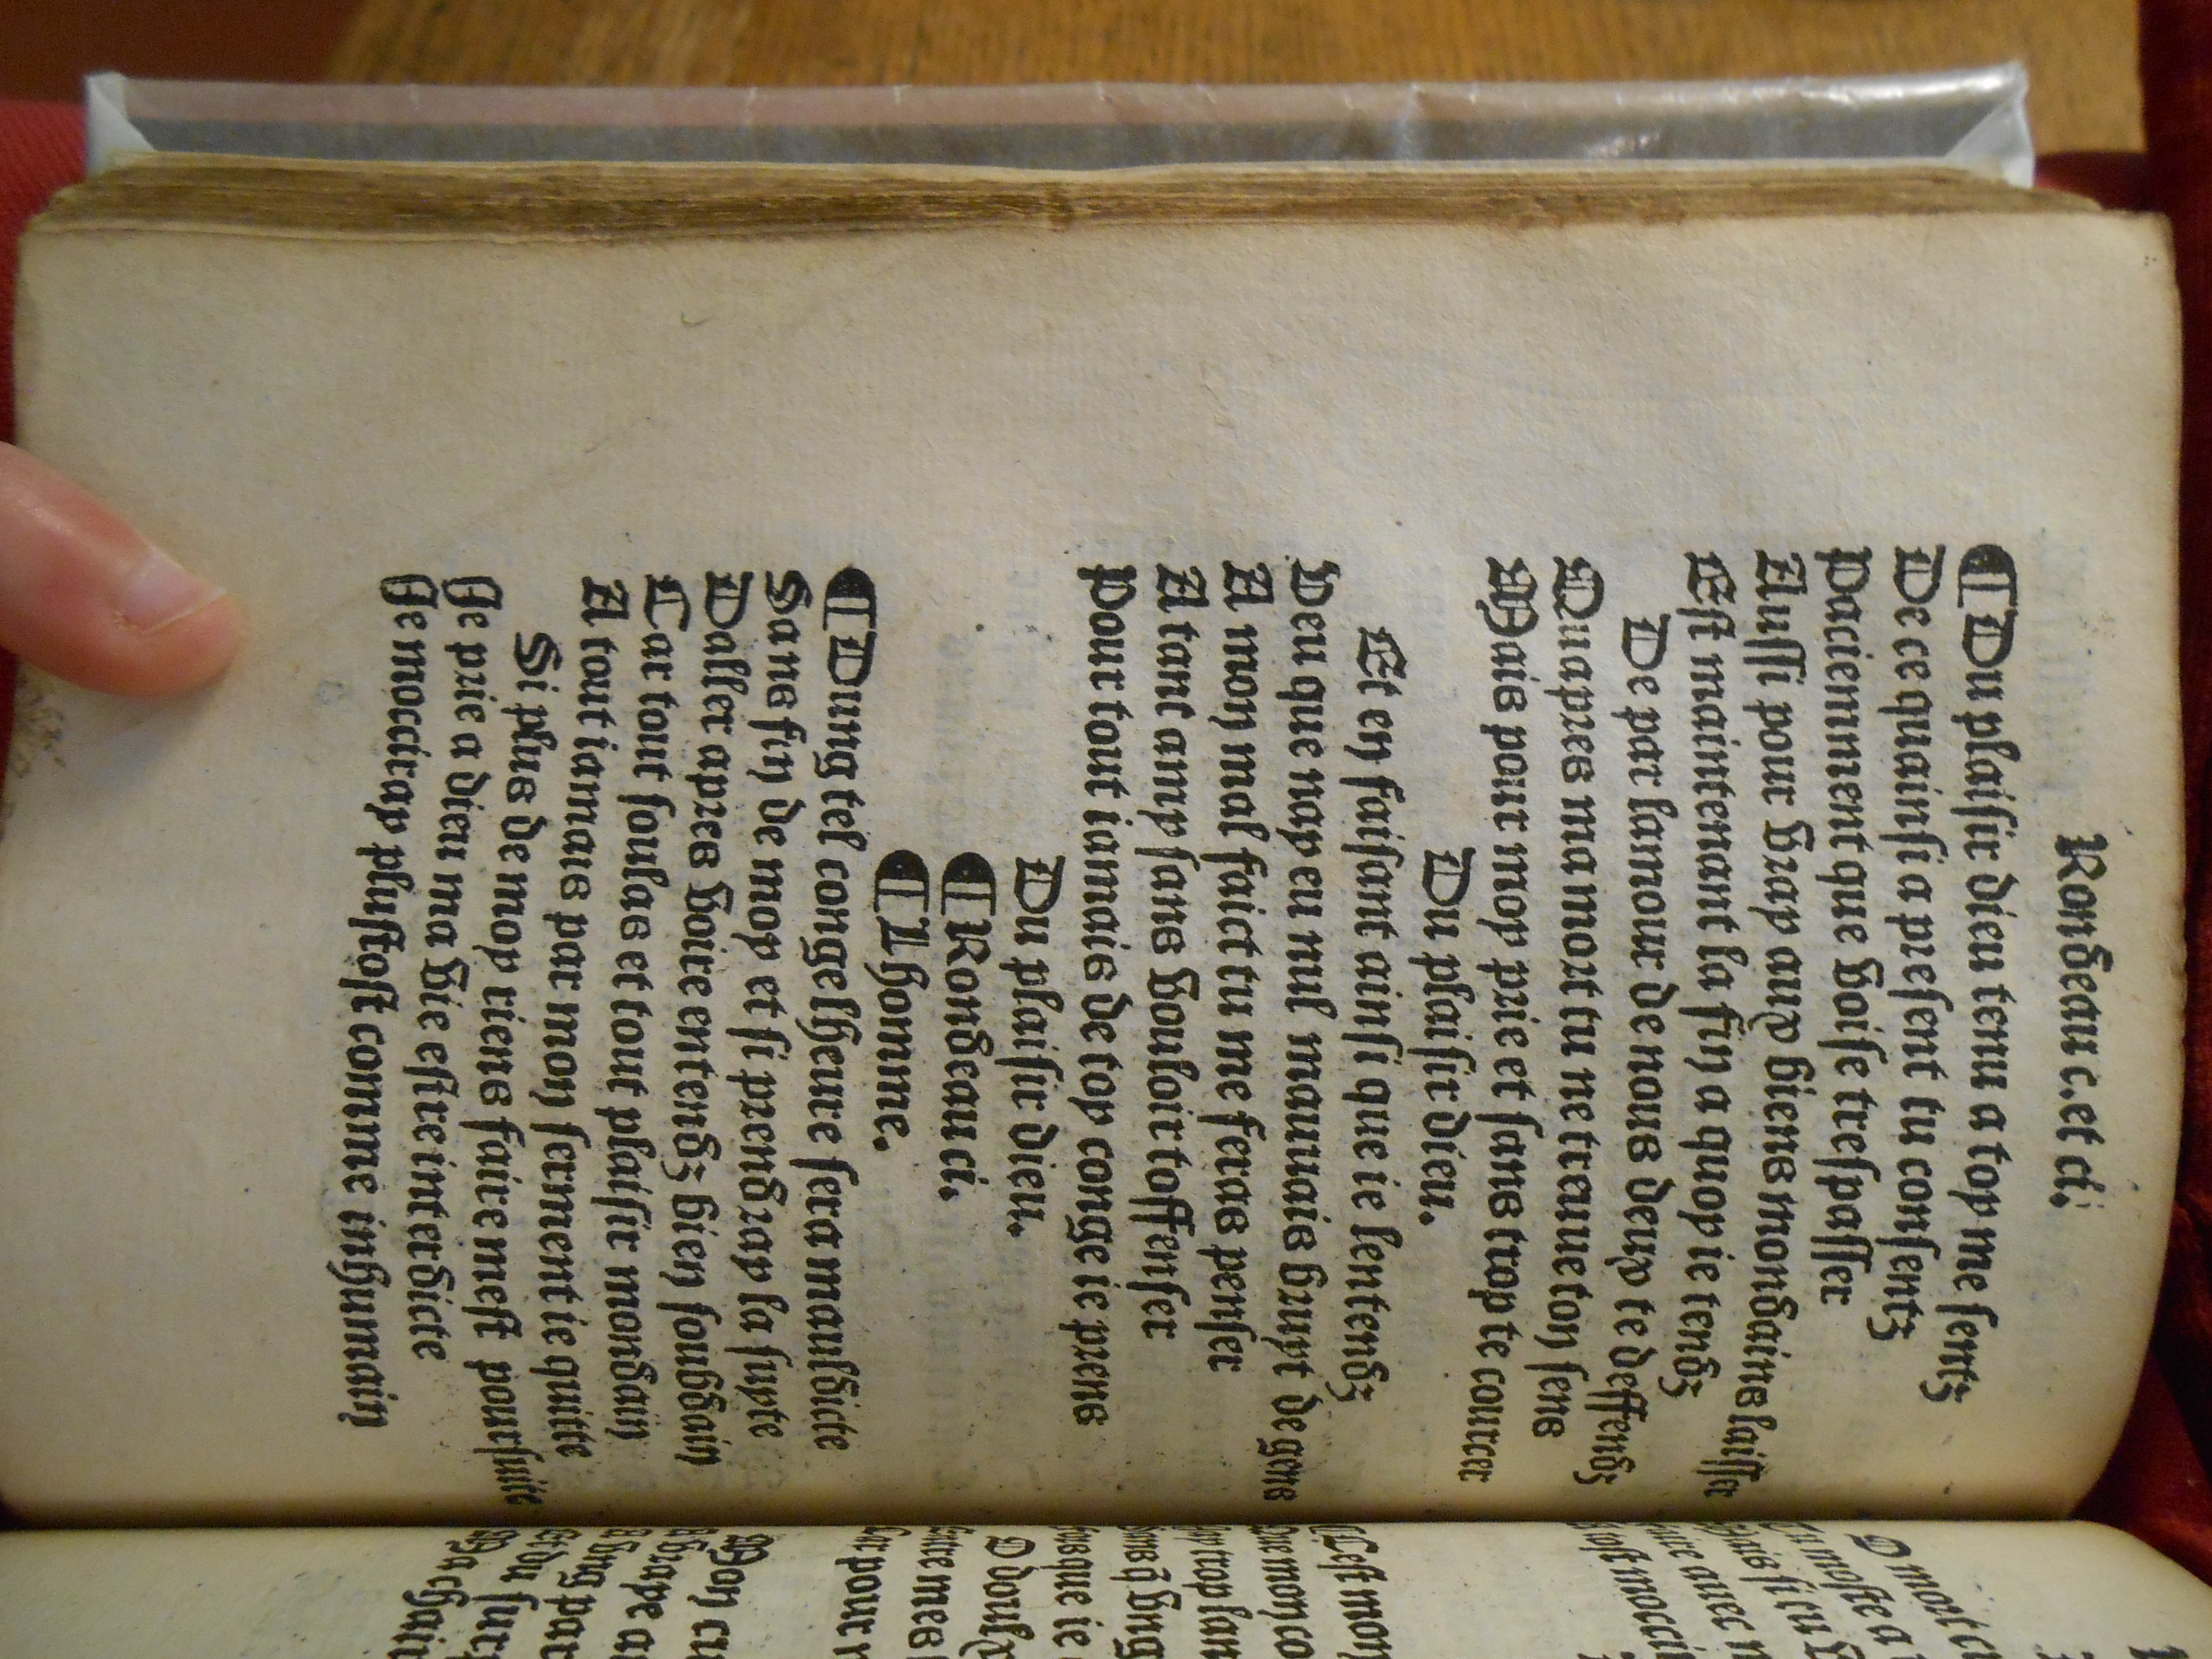 Rondeau c. et ci.
¶ Du plaisir dieu tenu a toy me sentz
De ce quainsi a pꝛesent tu consentz
Paciemment que voise trespasser
Aussi pour vray aux biens mondains laisser
Est maintenant la fin a quoy ie tendz
De par lamour de nous deux te deffendz
Quapꝛes ma moꝛt tu ne treuue ton sens
Mais pour moy pꝛie et sans trop te courcer
Du plaisir dieu.
Et en faisant ainsi que ie lentendz
Veu que nay eu nul mauuais bruyt de gens
A mon mal faict tu me feras penser
A tant amy sans vouloir toffenser
Pour tout iamais de toy conge ie pꝛens
Du plaisir dieu.
¶ Rondeau ci.
¶ Lhomme.
¶ Dung tel conge lheure sera mauldicte
Sans fin de moy et si pꝛendꝛay la fuyte
Daller apꝛes voire entendz bien soubdain
Car tout soulas et tout plaisir mondain
A tout iamais par mon serment ie quitte
Si plus de moy riens faire mest poursuite
Je pꝛie a dieu ma vie estre interdicte
Je mocciray plustost comme inhumain